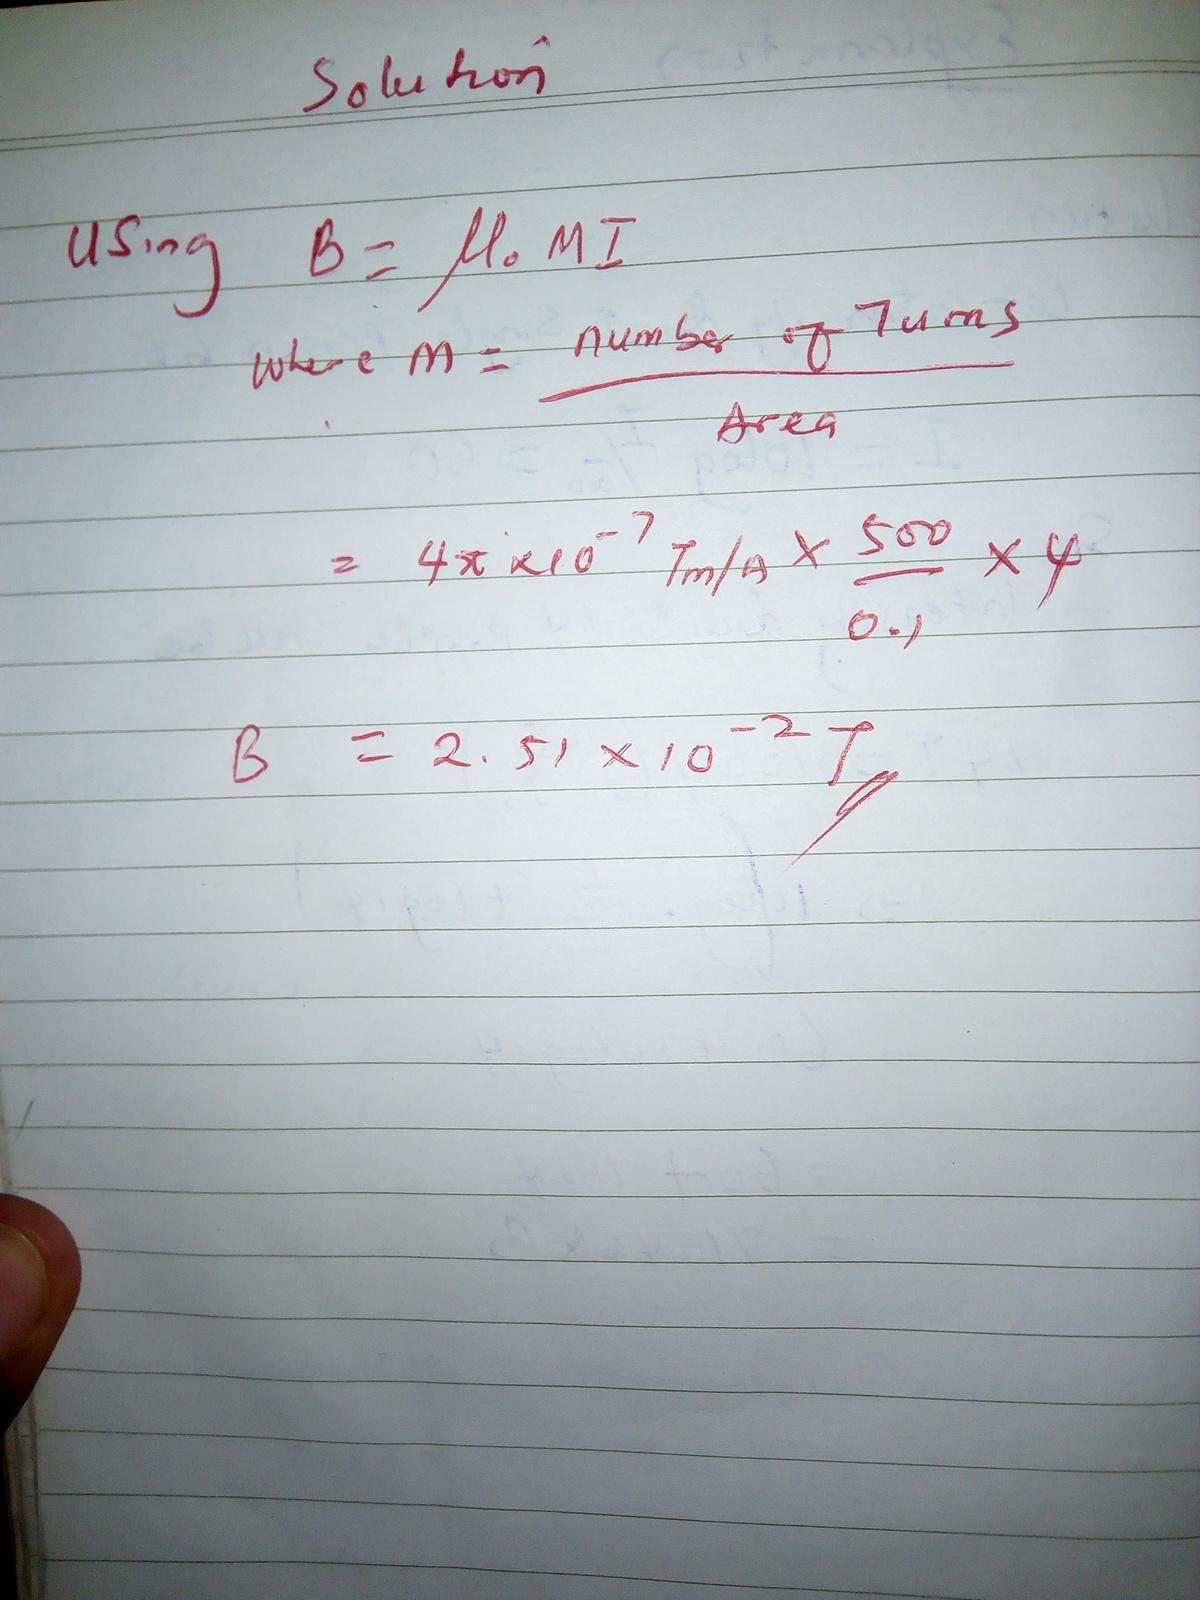 Solution
Using B = μ₀ MI
Where M = number of Turns
Area
= 4π×10⁻⁷ Tm/A × 500 × 4
0.1
B = 2.51×10⁻² T